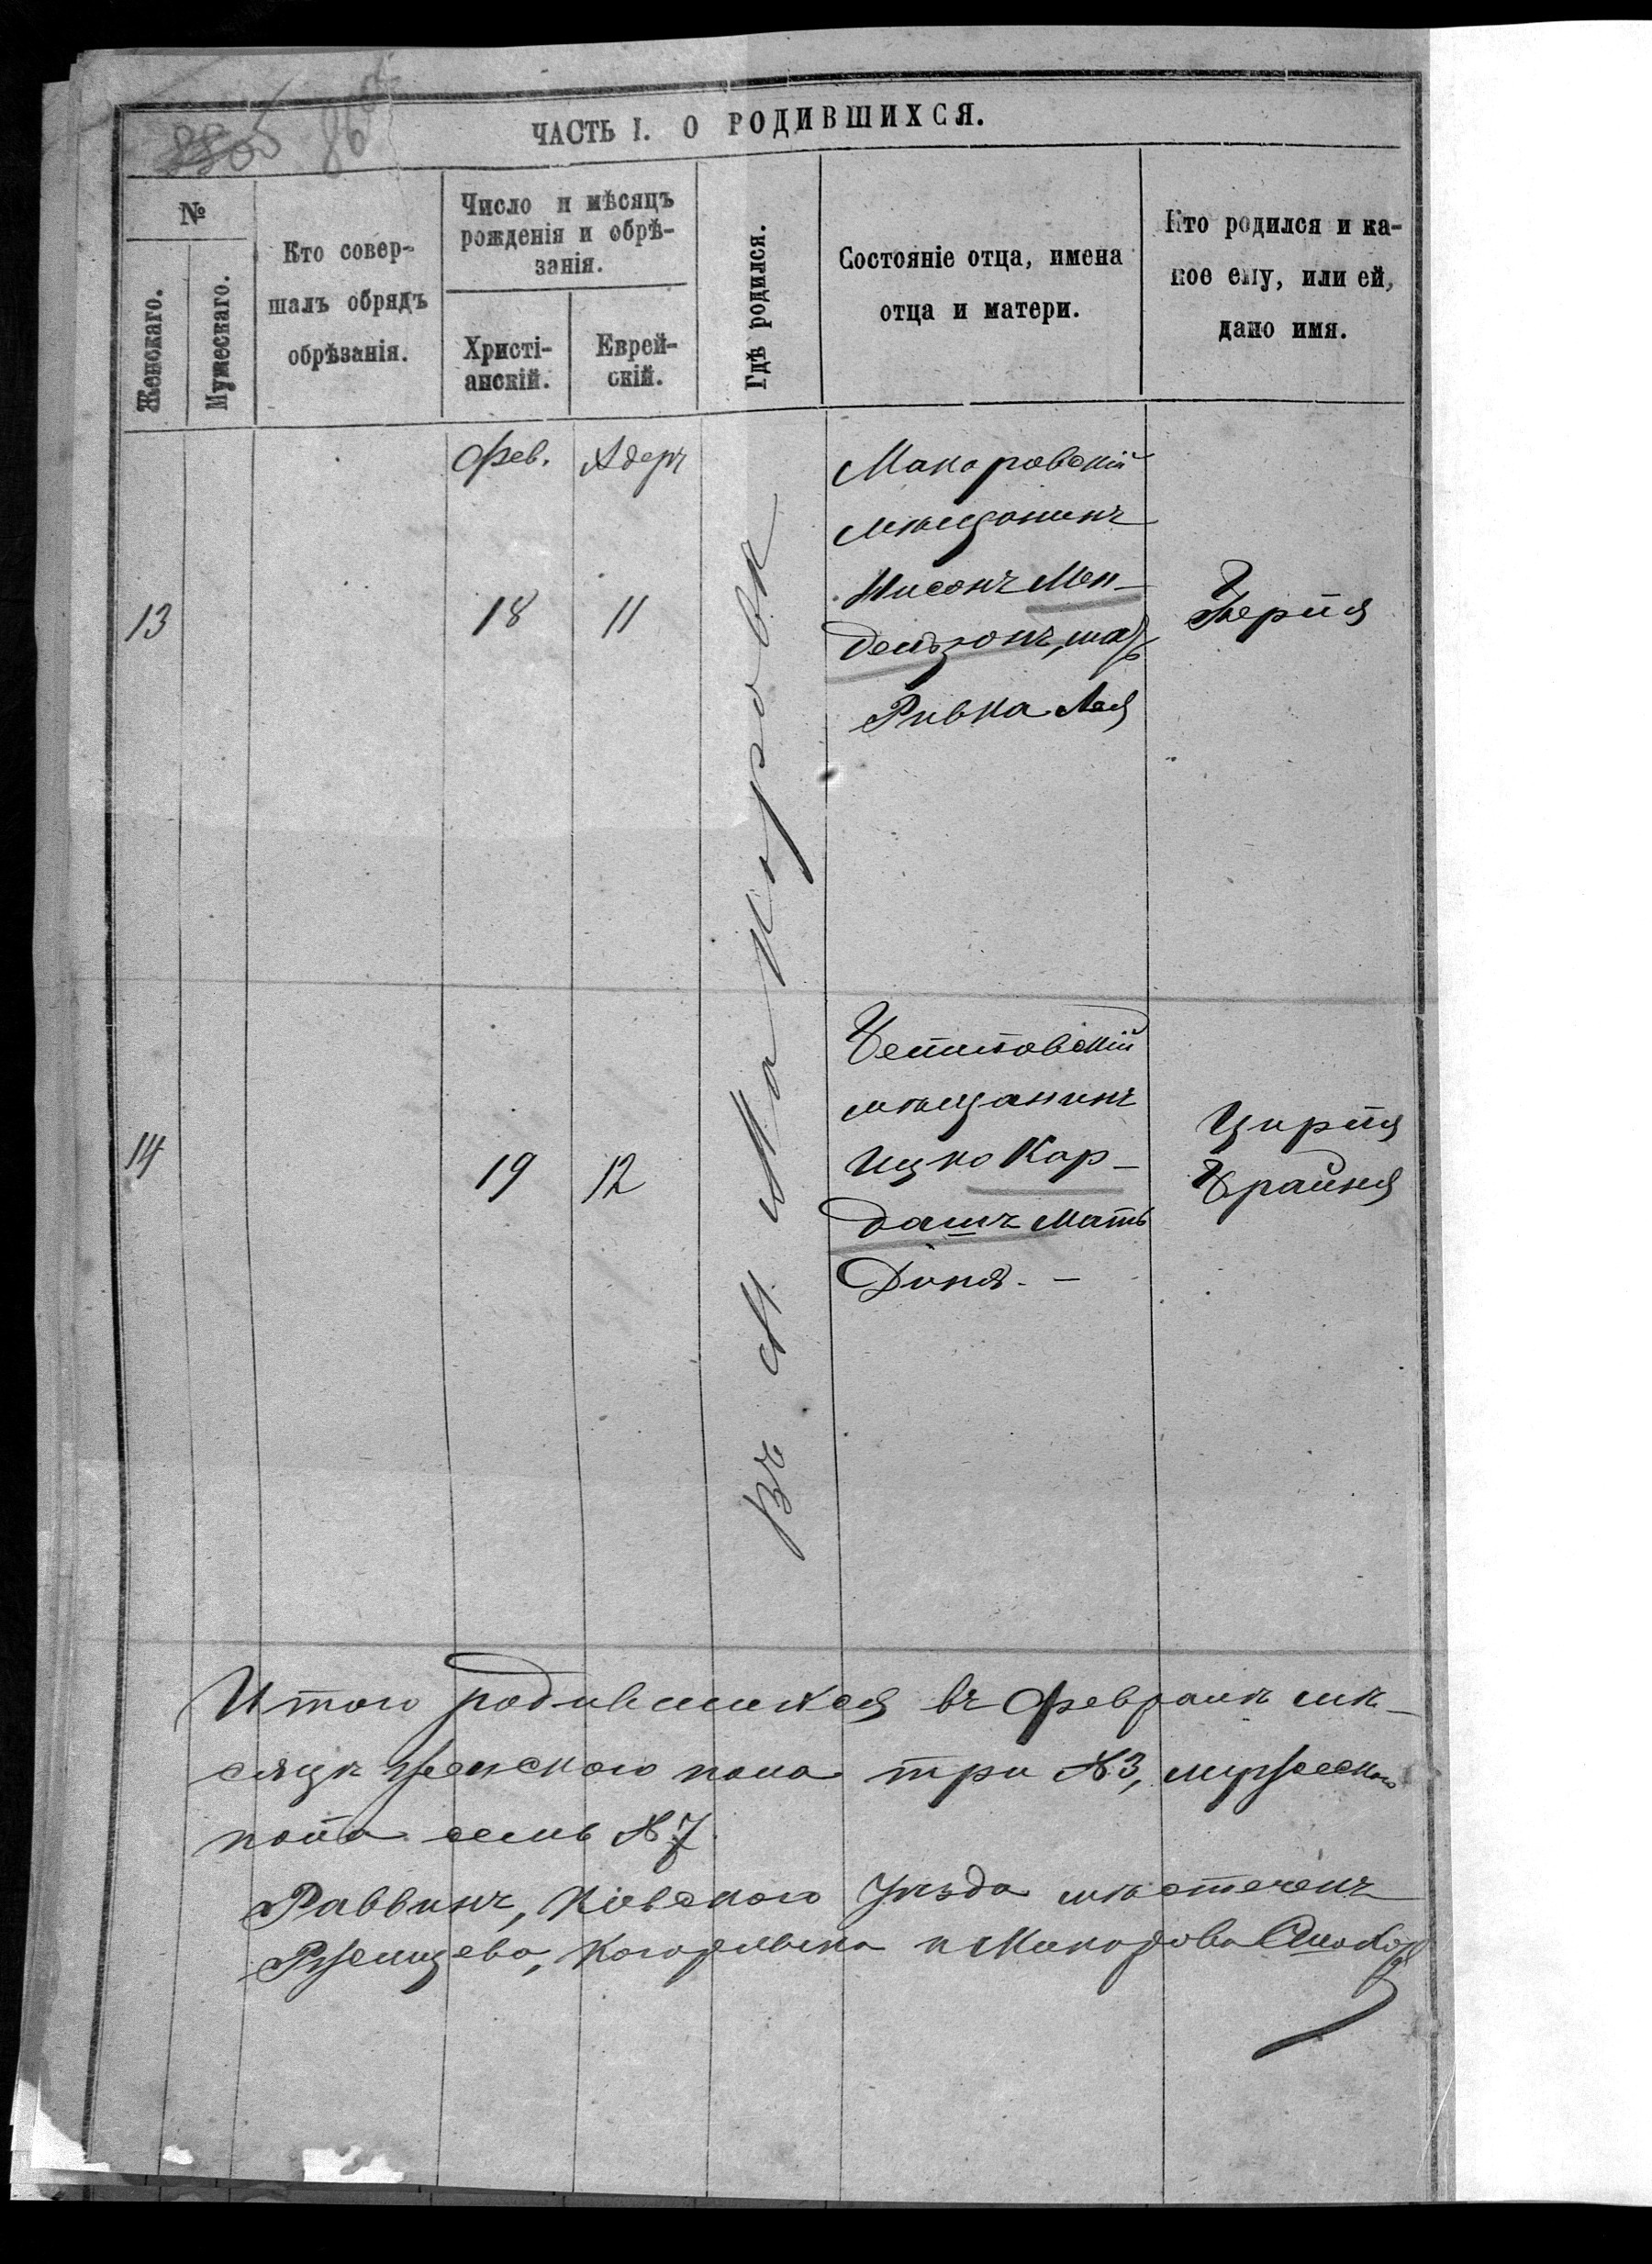 86
ЧАСТЬ I. О РОДИВШИХСЯ.
№
Женскаго.
Мужескаго.
Кто совер-
шалъ обрядъ
обрѣзанія.
Число и мѣсяцъ
рожденія и обрѣ-
занія.
Христі-
анскій.
Еврей-
скій.
Гдѣ родился.
Состояніе отца, имена
отца и матери.
Кто родился и ка-
кое ему, или ей,
дано имя.
Фев.
Адеръ
Въ М. Макоровѣ
13
18
11
Макоровскій
мѣщанинъ
Нисонъ Мен-
дельзонъ, мать
Ривка Лея
14
19
12
мѣщанинъ
Ицко Кар-
дашъ Мать
Доня. -
Цирля
Брайня
Итого родившихся въ Февралѣ мѣ-
сяцѣ женского пола три №3, мужеского
пола семь №7
Раввинъ, Кіевского Уѣзда мѣстечекъ
Ржищева, Когорлыка и Макорова